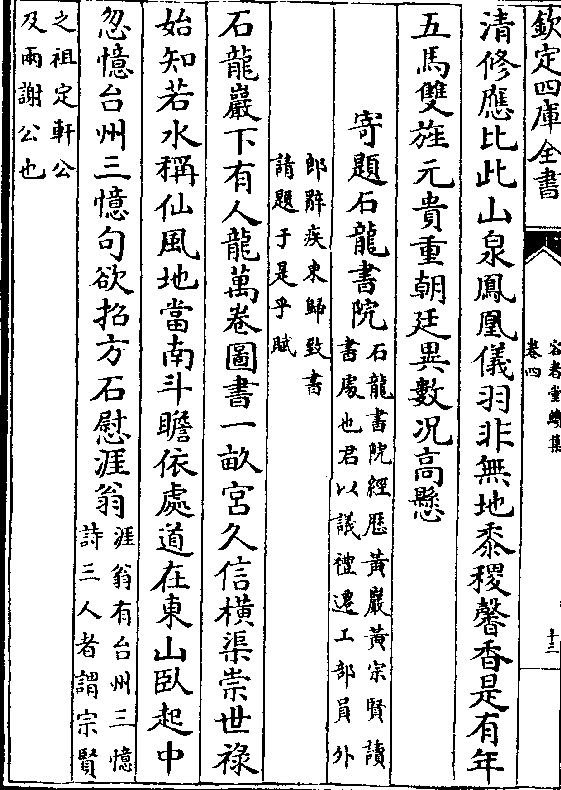 欽定四庫全書
容春堂續集
卷四
十三
清修應比此山泉鳳凰儀羽非無地黍稷馨香是有年
五馬雙旌元貴重朝廷異數况高懸
寄題石龍書院
石龍書院經歴黄巖黄宗賢讀
書處也君以議禮遷工部員外
郎辭疾東歸致書
請題于是乎賦
石龍巖下有人龍萬卷圖書一畝宫久信横渠崇世禄
始知若水稱仙風地當南斗瞻依處道在東山臥起中
忽憶台州三憶句欲招方石慰涯翁
涯翁有台州三憶
詩三人者謂宗賢
之祖定軒公
及兩謝公也